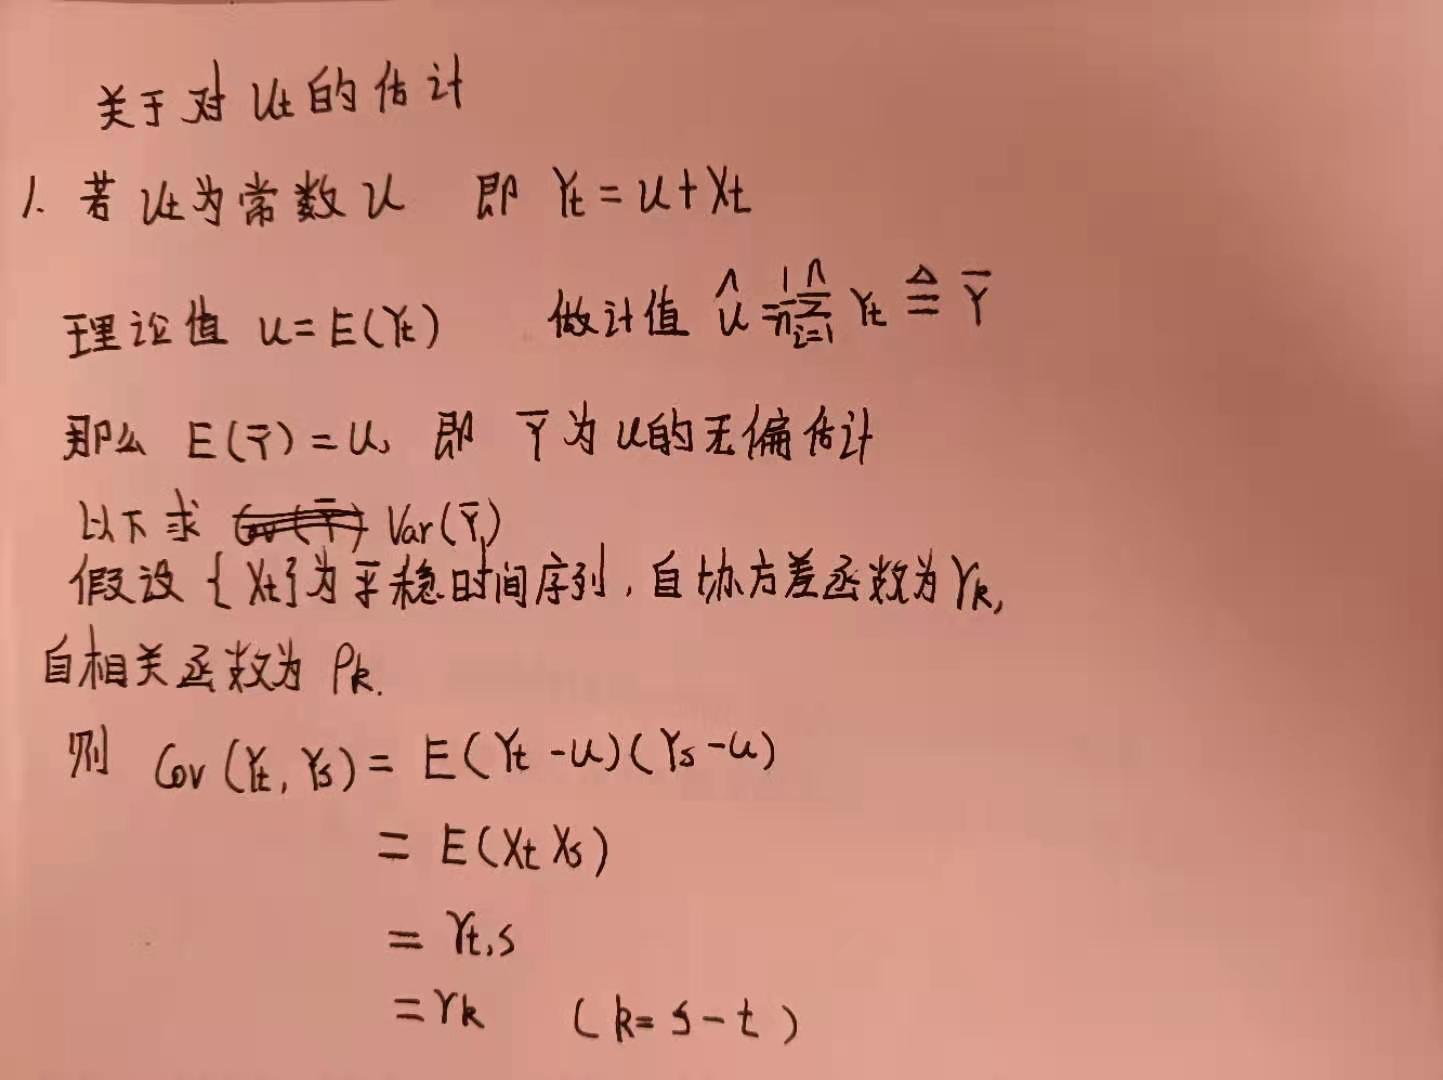 关于对 Ut 的估计
1. 若 Ut 为常数 U 即 Yt = U + Xt
理论值 U = E(Yt) 做计值 Û = 1/n Σ_{i=1}^{n} Yt ≜ Ȳ
那么 E(Ȳ) = U, 即 Ȳ 为 U 的无偏估计
以下求 Var(Ȳ)
假设 {Xt} 为平稳时间序列, 自协方差函数为 γk,
自相关函数为 ρk.
则 Cov(Yt, Ys) = E(Yt - U)(Ys - U)
= E(Xt Xs)
= γt,s
= γk (k = s - t)